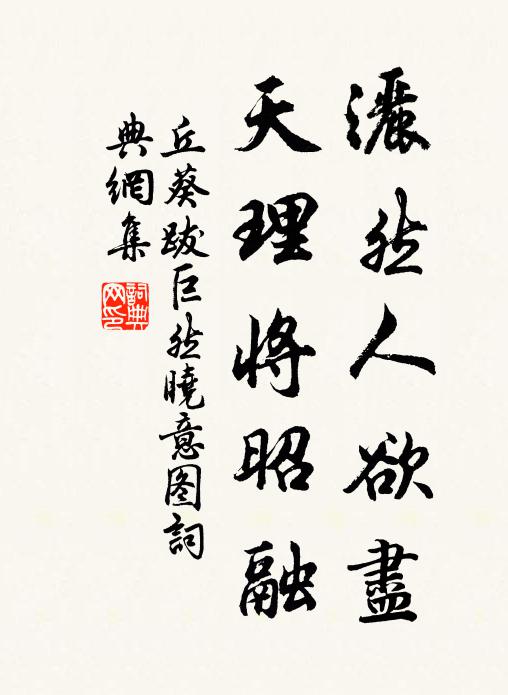 灑然人欲盡
天理將昭融
丘葵跋巨然曉意圖詞
典網集
詞典
网印